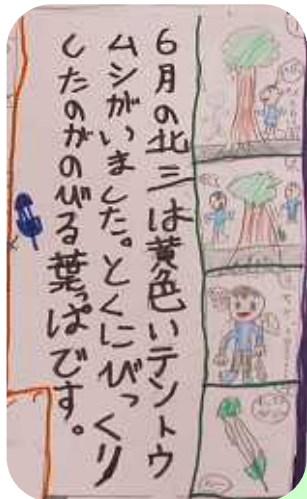 6月の北三は黄色いテントウ
ムシがいました。とくにびっくり
したのがのびる葉っぱです。